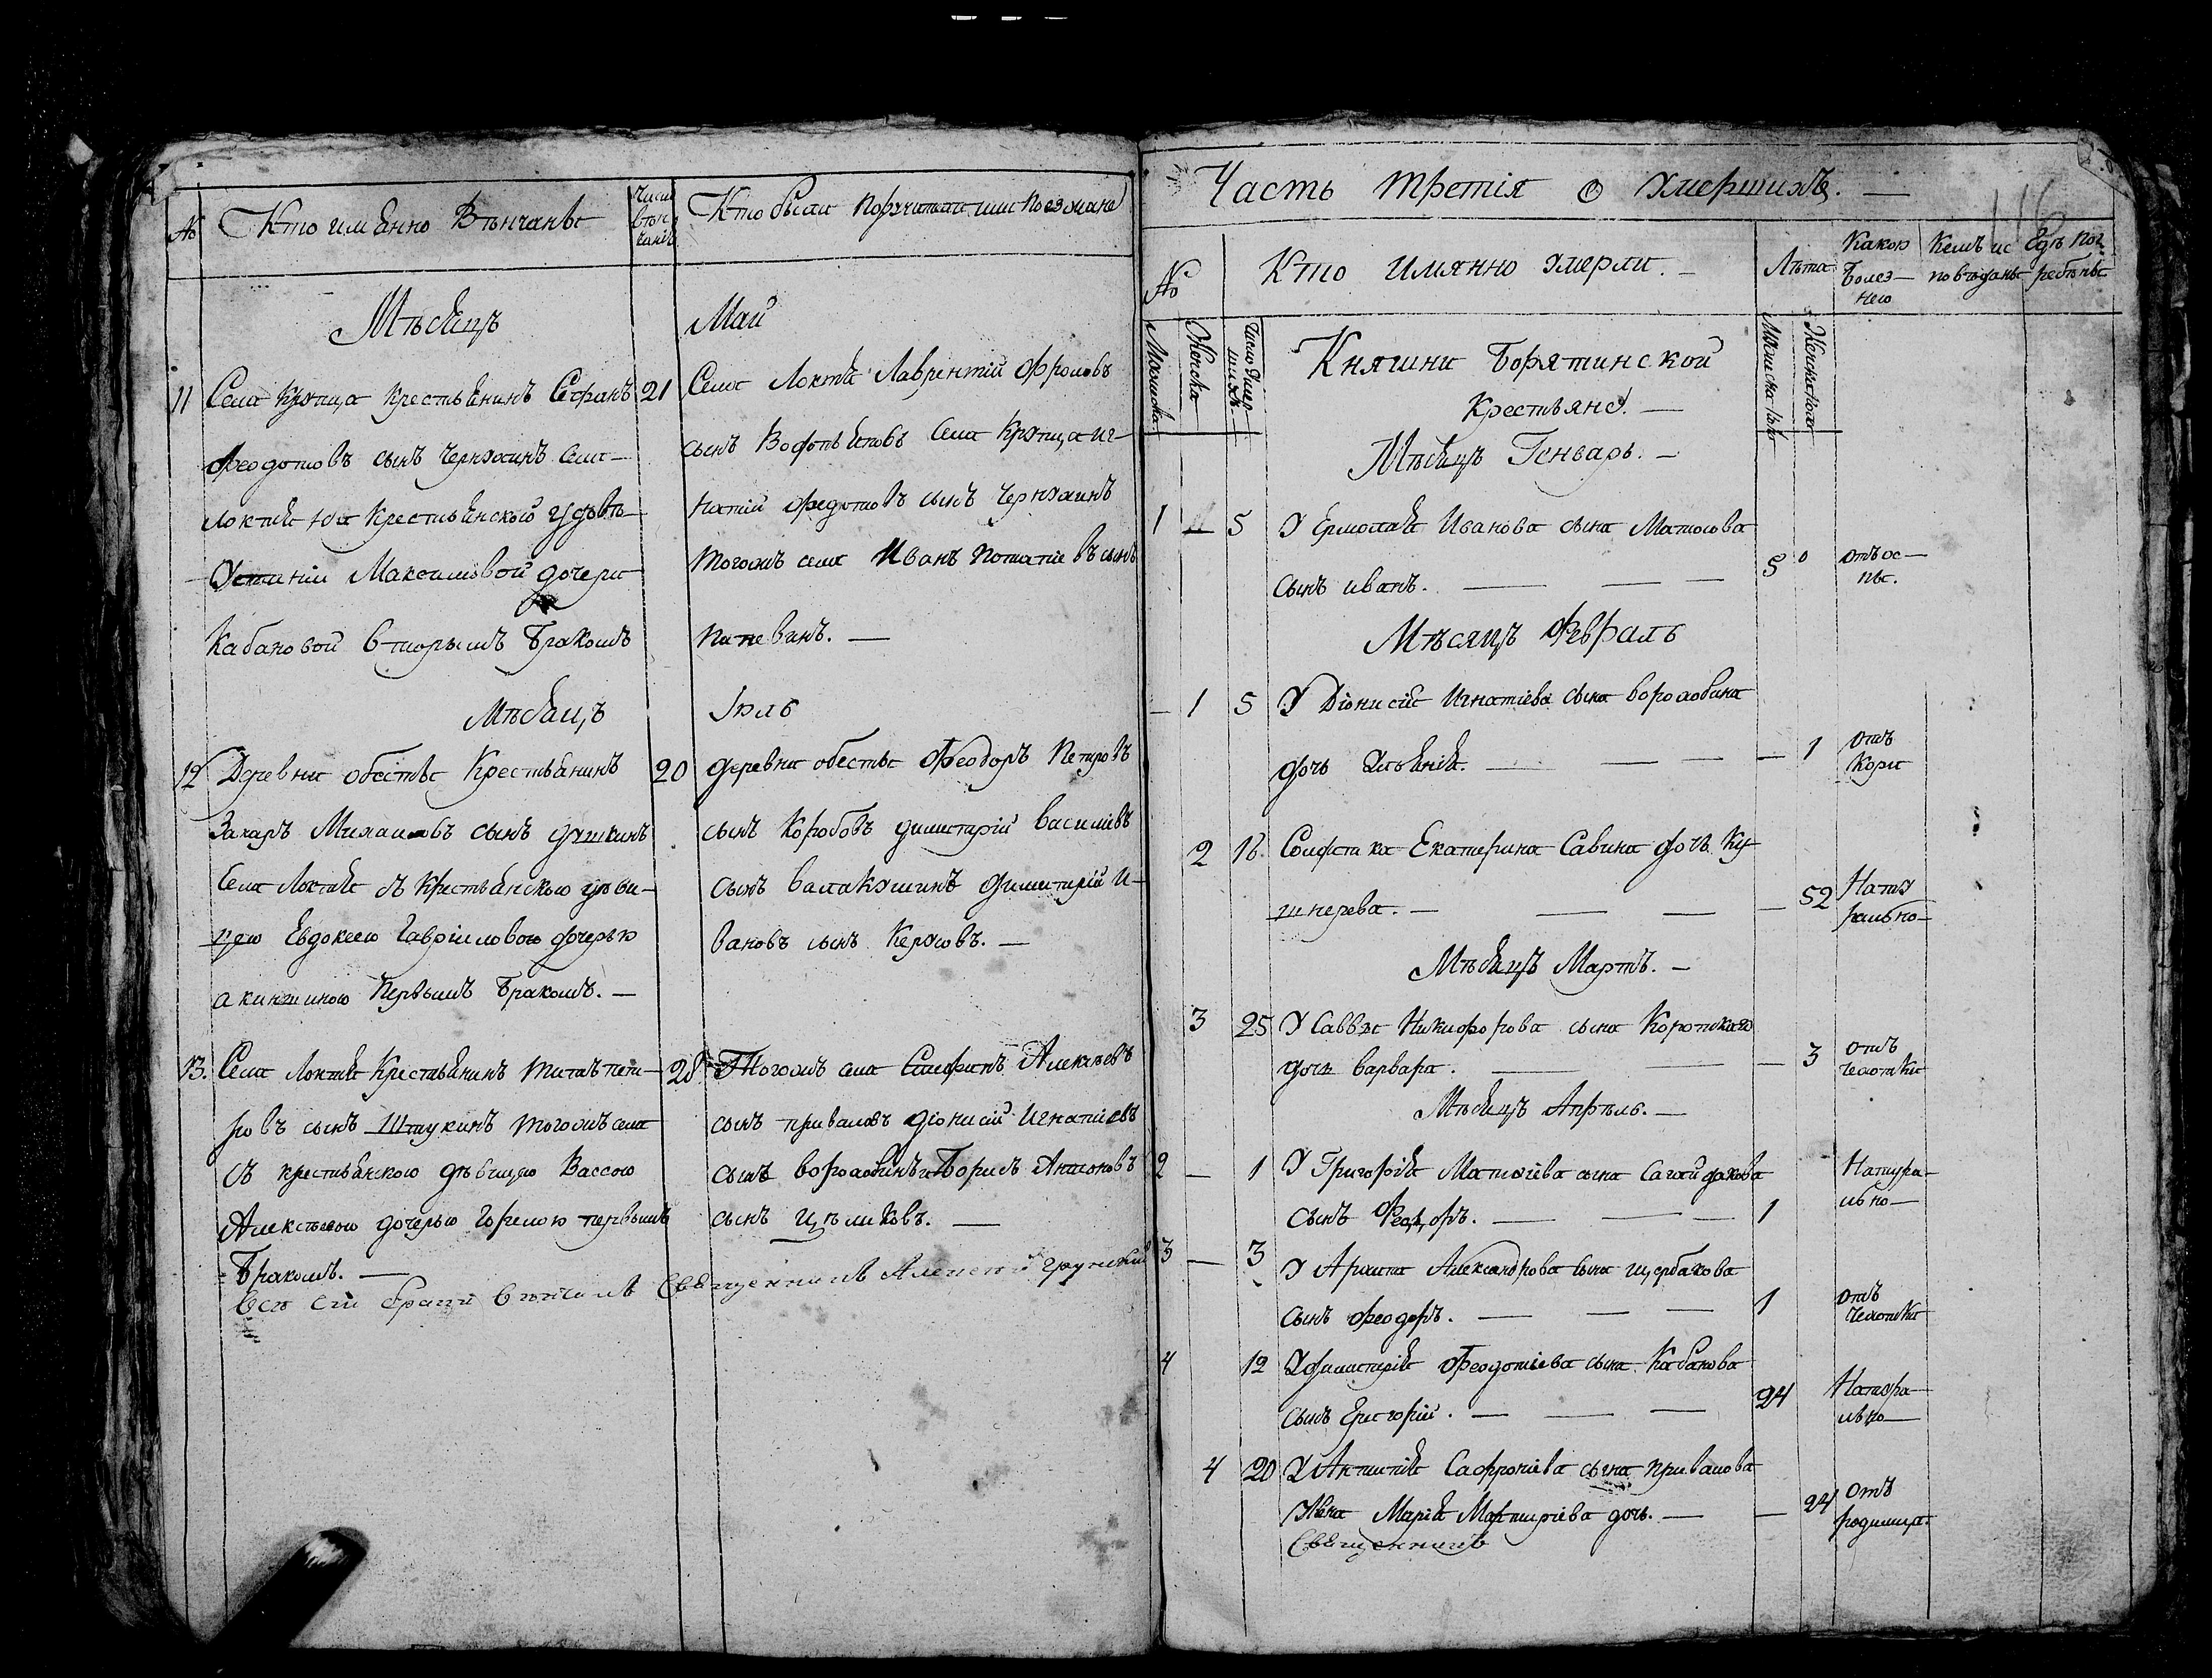 № Кто имѧнно Вѣнчаны
Число
вѣн
чанія
Кто были поручители или поезжане
Мѣсѧцъ Май
11 Села Крупца крестьѧнинъ Стефанъ 21
Феодотовъ сынъ Чернухинъ села
Локтѧ на крестьѧнской вдовѣ
Устиніи Максимовой дочери
Кабановой вторымъ бракомъ
Села Локтѧ Лаврентій Фроловъ
сынъ села Крупца Иг-
натій Федотовъ сынъ Чернухинъ
тогожъ села Иванъ Потапіевъ сынъ
Мѣсѧцъ Іюль
12 Деревни обесты Крестьѧнинъ 20
Захаръ Михаиловъ сынъ
села Локтѧ съ крестьѧнскою дѣви-
цею Евдокеею Гавріиловою дочерью
акиншиною первымъ бракомъ. —
деревни обесты Феодоръ Петровъ
сынъ Коробовъ димитрій Василіевъ
сынъ балакушинъ димитрій И-
вановъ сынъ Керусовъ. —
13. Села Локтѧ Крестьѧнинъ Титъ пет-
ровъ сынъ Штукинъ тогожъ села
съ крестьѧнскою дѣвицею Вассою
Алексѣевою дочерью Горелою первымъ
бракомъ. —
28 Тогожъ села Алексѣевъ
сынъ приваловъ Діонисій Игнатіевъ
сынъ воробьинъ Борисъ Антоновъ
сынъ Цѣликовъ. —
Всѣ сіи браки вѣнчалъ Свѧщенникъ Алексей
Часть третія о умершихъ. —
116
№
Кто имянно умерли. —
Лѣта
Какою
болез-
нею
Кемъ ис
поведаны
Гдѣ пог
ребены
Мужеска
Женска
Число умер-
шихъ
Мужеска полу
Женска полу
Княгини Борятинской
Крестьяне. —
Мѣсѧцъ Генварь. —
1 — 5 У Ермолаѧ Иванова сына Матюсова
сынъ иванъ. — — — 5 отъ ос-
пы.
Мѣсяцъ Февраль
— 1 5 У Діонисіѧ Игнатіева сына воробьина
дочь Ульѧніѧ. — — — — 1 отъ
Кори
2 16. Солдатка Екатерина Савина дочь Ку-
шнерева. — — — — 52 Нату
рально —
Мѣсѧцъ Мартъ. —
3 25 У Саввы Никифорова сына Короткаго
дочь варвара. — — — 3 отъ
чехотки
Мѣсѧцъ Апрѣль. —
2 — 1 У Григоріѧ Матѳіева сына Сагайдакова
сынъ Феодоръ. — — — 1 Натура-
льно —
3 — 3 У Архипа Александрова сына щербакова
сынъ Феодоръ. — — — 1 отъ
чехотки
4 12 У димитріѧ Феодотіева сына Кабанова
сынъ Григорій. — — — 24 Натура-
льно —
4 20 У Антипіѧ Сафроніева сына привалова
жена Маріѧ Мартиріева дочь. — — 24 отъ
родимца.
Свѧщенникъ